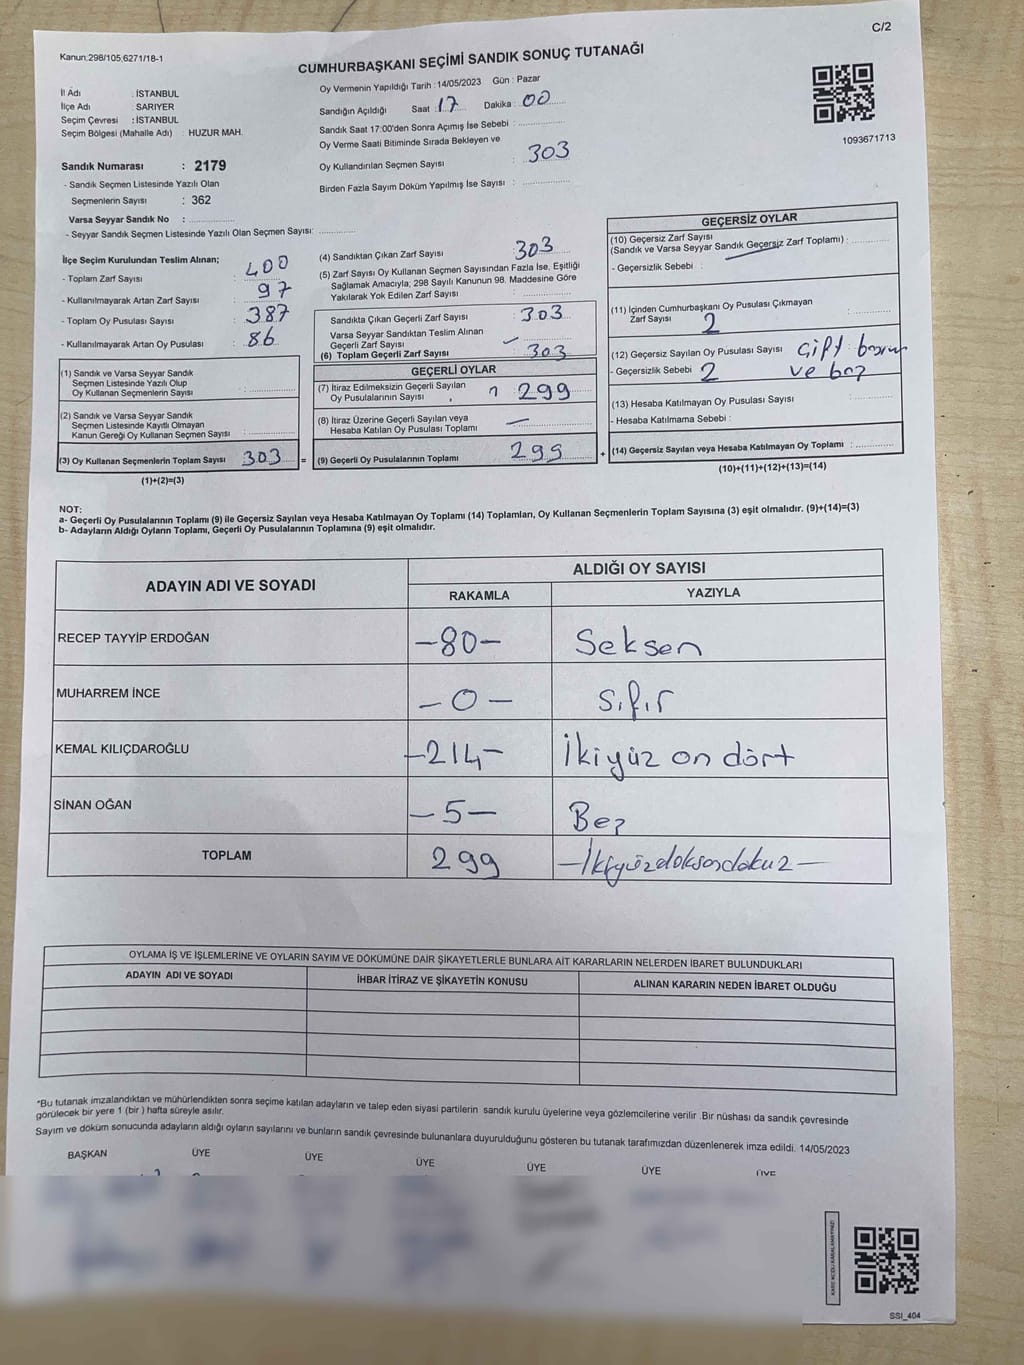 C/2
Kanun:298/105,6271/18-1
CUMHURBAŞKANI SEÇİMİ SANDIK SONUÇ TUTANAĞI
İl Adı : İSTANBUL
İlçe Adı : SARIYER
Seçim Çevresi : İSTANBUL
Seçim Bölgesi (Mahalle Adı) : HUZUR MAH.
Sandık Numarası : 2179
- Sandık Seçmen Listesinde Yazılı Olan
Seçmenlerin Sayısı : 362
Varsa Seyyar Sandık No :
- Seyyar Sandık Seçmen Listesinde Yazılı Olan Seçmen Sayısı:
Oy Vermenin Yapıldığı Tarih : 14/05/2023 Gün : Pazar
Sandığın Açıldığı Saat 17 Dakika : 00
Sandık Saat 17:00'den Sonra Açımış İse Sebebi :
Oy Verme Saati Bitiminde Sırada Bekleyen ve
Oy Kullandırılan Seçmen Sayısı : 303
Birden Fazla Sayım Döküm Yapılmış İse Sayısı :
1093671713
İlçe Seçim Kurulundan Teslim Alınan;
- Toplam Zarf Sayısı : 400
- Kullanılmayarak Artan Zarf Sayısı : 97
- Toplam Oy Pusulası Sayısı : 387
- Kullanılmayarak Artan Oy Pusulası : 86
(1) Sandık ve Varsa Seyyar Sandık
Seçmen Listesinde Yazılı Olup
Oy Kullanan Seçmenlerin Sayısı :
(2) Sandık ve Varsa Seyyar Sandık
Seçmen Listesinde Kayıtlı Olmayan
Kanun Gereği Oy Kullanan Seçmen Sayısı :
(3) Oy Kullanan Seçmenlerin Toplam Sayısı 303 =
(1)+(2)=(3)
(4) Sandıktan Çıkan Zarf Sayısı : 303
(5) Zarf Sayısı Oy Kullanan Seçmen Sayısından Fazla İse, Eşitliği
Sağlamak Amacıyla; 298 Sayılı Kanunun 98. Maddesine Göre
Yakılarak Yok Edilen Zarf Sayısı :
Sandıkta Çıkan Geçerli Zarf Sayısı : 303
Varsa Seyyar Sandıktan Teslim Alınan
Geçerli Zarf Sayısı : –
(6) Toplam Geçerli Zarf Sayısı : 303
GEÇERLİ OYLAR
(7) İtiraz Edilmeksizin Geçerli Sayılan
Oy Pusulalarının Sayısı : 299
(8) İtiraz Üzerine Geçerli Sayılan veya
Hesaba Katılan Oy Pusulası Toplamı : –
(9) Geçerli Oy Pusulalarının Toplamı 299 +
GEÇERSİZ OYLAR
(10) Geçersiz Zarf Sayısı
(Sandık ve Varsa Seyyar Sandık Geçersiz Zarf Toplamı) :
- Geçersizlik Sebebi :
(11) İçinden Cumhurbaşkanı Oy Pusulası Çıkmayan
Zarf Sayısı 2 :
(12) Geçersiz Sayılan Oy Pusulası Sayısı : Çift basım
- Geçersizlik Sebebi 2 ve boş
(13) Hesaba Katılmayan Oy Pusulası Sayısı :
- Hesaba Katılmama Sebebi :
(14) Geçersiz Sayılan veya Hesaba Katılmayan Oy Toplamı :
(10)+(11)+(12)+(13)=(14)
NOT:
a- Geçerli Oy Pusulalarının Toplamı (9) ile Geçersiz Sayılan veya Hesaba Katılmayan Oy Toplamı (14) Toplamları, Oy Kullanan Seçmenlerin Toplam Sayısına (3) eşit olmalıdır. (9)+(14)=(3)
b- Adayların Aldığı Oyların Toplamı, Geçerli Oy Pusulalarının Toplamına (9) eşit olmalıdır.
ADAYIN ADI VE SOYADI
ALDIĞI OY SAYISI
RAKAMLA YAZIYLA
RECEP TAYYİP ERDOĞAN –80– Seksen
MUHARREM İNCE –0– Sıfır
KEMAL KILIÇDAROĞLU –214– İkiyüz on dört
SİNAN OĞAN –5– Beş
TOPLAM 299 –İkiyüzdoksandokuz–
OYLAMA İŞ VE İŞLEMLERİNE VE OYLARIN SAYIM VE DÖKÜMÜNE DAİR ŞİKAYETLERLE BUNLARA AİT KARARLARIN NELERDEN İBARET BULUNDUKLARI
ADAYIN ADI VE SOYADI İHBAR İTİRAZ VE ŞİKAYETİN KONUSU ALINAN KARARIN NEDEN İBARET OLDUĞU
"Bu tutanak imzalandıktan ve mühürlendikten sonra seçime katılan adayların ve talep eden siyasi partilerin sandık kurulu üyelerine veya gözlemcilerine verilir. Bir nüshası da sandık çevresinde
görülecek bir yere 1 (bir ) hafta süreyle asılır.
Sayım ve döküm sonucunda adayların aldığı oyların sayılarını ve bunların sandık çevresinde bulunanlara duyurulduğunu gösteren bu tutanak tarafımızdan düzenlenerek imza edildi. 14/05/2023
BAŞKAN ÜYE ÜYE ÜYE ÜYE ÜYE ÜYE
KARE KODU KARALAMAYINIZ!
SSI_404